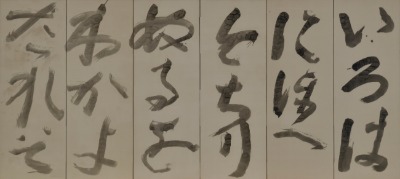 いろは
にほへ
とちり
ぬるを
わかよ
たれそ